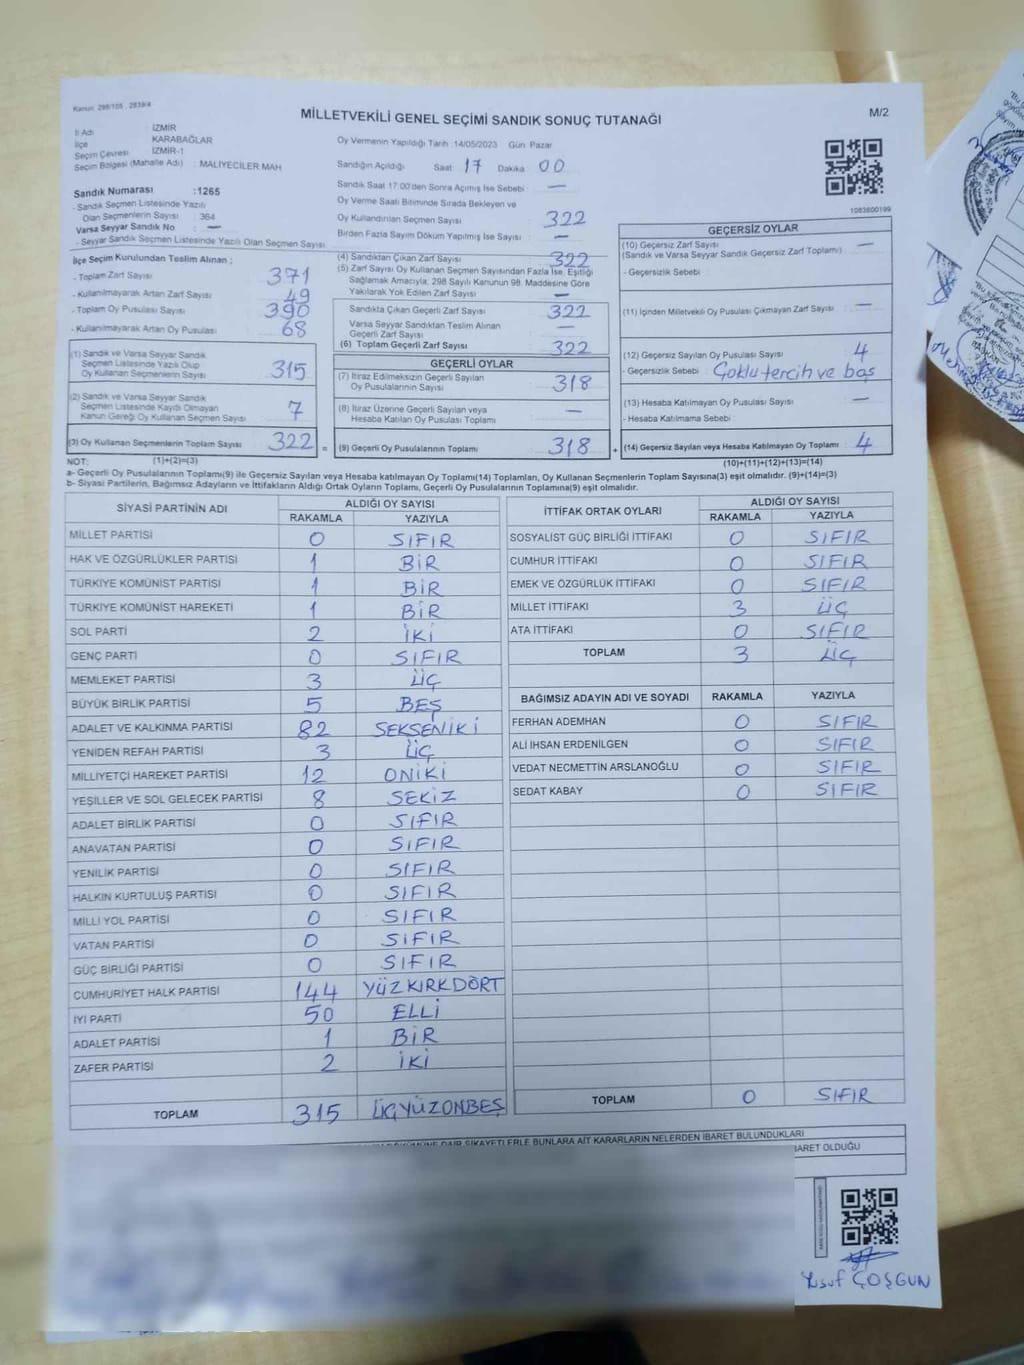 Kanun: 298/105 , 2839/4
MİLLETVEKİLİ GENEL SEÇİMİ SANDIK SONUÇ TUTANAĞI
M/2
İl Adı İZMİR
İlçe KARABAĞLAR
Seçim Çevresi İZMİR-1
Seçim Bölgesi (Mahalle Adı) : MALİYECİLER MAH
Sandık Numarası :1265
- Sandık Seçmen Listesinde Yazılı
Olan Seçmenlerin Sayısı : 364
Varsa Seyyar Sandık No —
- Seyyar Sandık Seçmen Listesinde Yazılı Olan Seçmen Sayısı
Oy Vermenin Yapıldığı Tarih :14/05/2023 Gün Pazar
Sandığın Açıldığı Saat 17 Dakika 00
Sandık Saat 17:00'den Sonra Açılmış İse Sebebi —
Oy Verme Saati Bitiminde Sırada Bekleyen ve
Oy Kullandırılan Seçmen Sayısı 322
Birden Fazla Sayım Döküm Yapılmış İse Sayısı —
1083600199
İlçe Seçim Kurulundan Teslim Alınan ;
- Toplam Zarf Sayısı 371
- Kullanılmayarak Artan Zarf Sayısı 49
- Toplam Oy Pusulası Sayısı 390
- Kullanılmayarak Artan Oy Pusulası 68
(1) Sandık ve Varsa Seyyar Sandık
Seçmen Listesinde Yazılı Olup
Oy Kullanan Seçmenlerin Sayısı 315
(2) Sandık ve Varsa Seyyar Sandık
Seçmen Listesinde Kaydı Olmayan
Kanun Gereği Oy Kullanan Seçmen Sayısı 7
(3) Oy Kullanan Seçmenlerin Toplam Sayısı 322 =
(4) Sandıktan Çıkan Zarf Sayısı 322
(5) Zarf Sayısı Oy Kullanan Seçmen Sayısından Fazla İse, Eşitliği
Sağlamak Amacıyla; 298 Sayılı Kanunun 98. Maddesine Göre
Yakılarak Yok Edilen Zarf Sayısı —
Sandıkta Çıkan Geçerli Zarf Sayısı 322
Varsa Seyyar Sandıktan Teslim Alınan
Geçerli Zarf Sayısı —
(6) Toplam Geçerli Zarf Sayısı 322
GEÇERLİ OYLAR
(7) İtiraz Edilmeksizin Geçerli Sayılan
Oy Pusulalarının Sayısı 318
(8) İtiraz Üzerine Geçerli Sayılan veya
Hesaba Katılan Oy Pusulaları Toplamı —
(9) Geçerli Oy Pusulalarının Toplamı 318 +
GEÇERSİZ OYLAR
(10) Geçersiz Zarf Sayısı —
(Sandık ve Varsa Seyyar Sandık Geçersiz Zarf Toplamı)
- Geçersizlik Sebebi :
(11) İçinden Milletvekili Oy Pusulası Çıkmayan Zarf Sayısı —
(12) Geçersiz Sayılan Oy Pusulası Sayısı 4
- Geçersizlik Sebebi : Çoklu tercih ve boş
(13) Hesaba Katılmayan Oy Pusulası Sayısı —
- Hesaba Katılmama Sebebi :
(14) Geçersiz Sayılan veya Hesaba Katılmayan Oy Toplamı 4
NOT: (1)+(2)=(3)
(10)+(11)+(12)+(13)=(14)
a- Geçerli Oy Pusulalarının Toplamı(9) ile Geçersiz Sayılan veya Hesaba katılmayan Oy Toplamı(14) Toplamları, Oy Kullanan Seçmenlerin Toplam Sayısına(3) eşit olmalıdır. (9)+(14)=(3)
b- Siyasi Partilerin, Bağımsız Adayların ve İttifakların Aldığı Ortak Oyların Toplamı, Geçerli Oy Pusulalarının Toplamına(9) eşit olmalıdır.
SİYASİ PARTİNİN ADI ALDIĞI OY SAYISI
RAKAMLA YAZIYLA
MİLLET PARTİSİ 0 SIFIR
HAK VE ÖZGÜRLÜKLER PARTİSİ 1 BİR
TÜRKİYE KOMÜNİST PARTİSİ 1 BİR
TÜRKİYE KOMÜNİST HAREKETİ 1 BİR
SOL PARTİ 2 İKİ
GENÇ PARTİ 0 SIFIR
MEMLEKET PARTİSİ 3 ÜÇ
BÜYÜK BİRLİK PARTİSİ 5 BEŞ
ADALET VE KALKINMA PARTİSİ 82 SEKSENİKİ
YENİDEN REFAH PARTİSİ 3 ÜÇ
MİLLİYETÇİ HAREKET PARTİSİ 12 ONİKİ
YEŞİLLER VE SOL GELECEK PARTİSİ 8 SEKİZ
ADALET BİRLİK PARTİSİ 0 SIFIR
ANAVATAN PARTİSİ 0 SIFIR
YENİLİK PARTİSİ 0 SIFIR
HALKIN KURTULUŞ PARTİSİ 0 SIFIR
MİLLİ YOL PARTİSİ 0 SIFIR
VATAN PARTİSİ 0 SIFIR
GÜÇ BİRLİĞİ PARTİSİ 0 SIFIR
CUMHURİYET HALK PARTİSİ 144 YÜZKIRKDÖRT
İYİ PARTİ 50 ELLİ
ADALET PARTİSİ 1 BİR
ZAFER PARTİSİ 2 İKİ
TOPLAM 315 ÜÇYÜZONBEŞ
İTTİFAK ORTAK OYLARI ALDIĞI OY SAYISI
RAKAMLA YAZIYLA
SOSYALİST GÜÇ BİRLİĞİ İTTİFAKI 0 SIFIR
CUMHUR İTTİFAKI 0 SIFIR
EMEK VE ÖZGÜRLÜK İTTİFAKI 0 SIFIR
MİLLET İTTİFAKI 3 ÜÇ
ATA İTTİFAKI 0 SIFIR
TOPLAM 3 ÜÇ
BAĞIMSIZ ADAYIN ADI VE SOYADI RAKAMLA YAZIYLA
FERHAN ADEMHAN 0 SIFIR
ALİ İHSAN ERDENİLGEN 0 SIFIR
VEDAT NECMETTİN ARSLANOĞLU 0 SIFIR
SEDAT KABAY 0 SIFIR
TOPLAM 0 SIFIR
DAİR ŞİKAYETLERLE BUNLARA AİT KARARLARIN NELERDEN İBARET BULUNDUKLARI
BARET OLDUĞU
Yusuf ÇOŞGUN